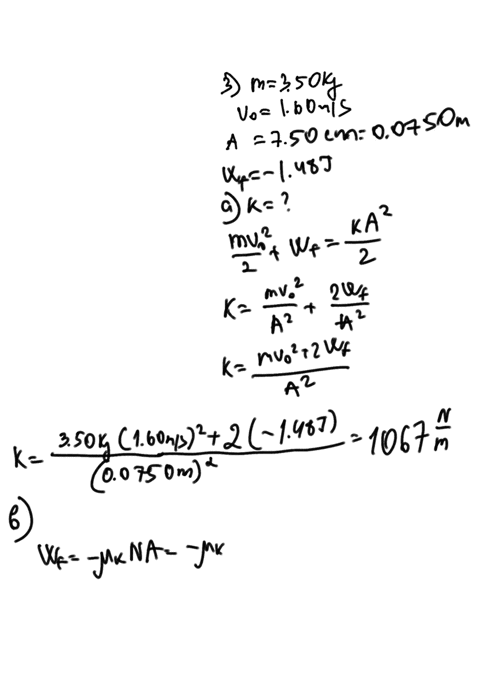 3) m=3.50kg
V₀=1.60m/s
A =7.50 cm=0.0750m
W_f=-1.48J
a) K=?
mv₀²/2 + W_f = KA²/2
K= mv₀²/A² + 2W_f/A²
K= (mv₀²+2W_f)/A²
K= (3.50kg(1.60m/s)²+2(-1.48J))/(0.0750m)² =1067 N/m
b)
W_f=-μ_K NA=-μ_K